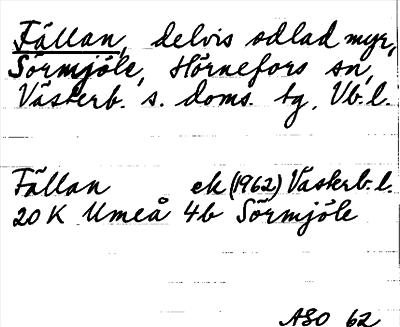 Fällan, delvis odlad myr,
Sörmjöle, Hörnefors sn,
Västerb. s. doms. tg, Vb. l.
Fällan ek (1962) Västerb. l.
20 K Umeå 4b Sörmjöle
ASO 62